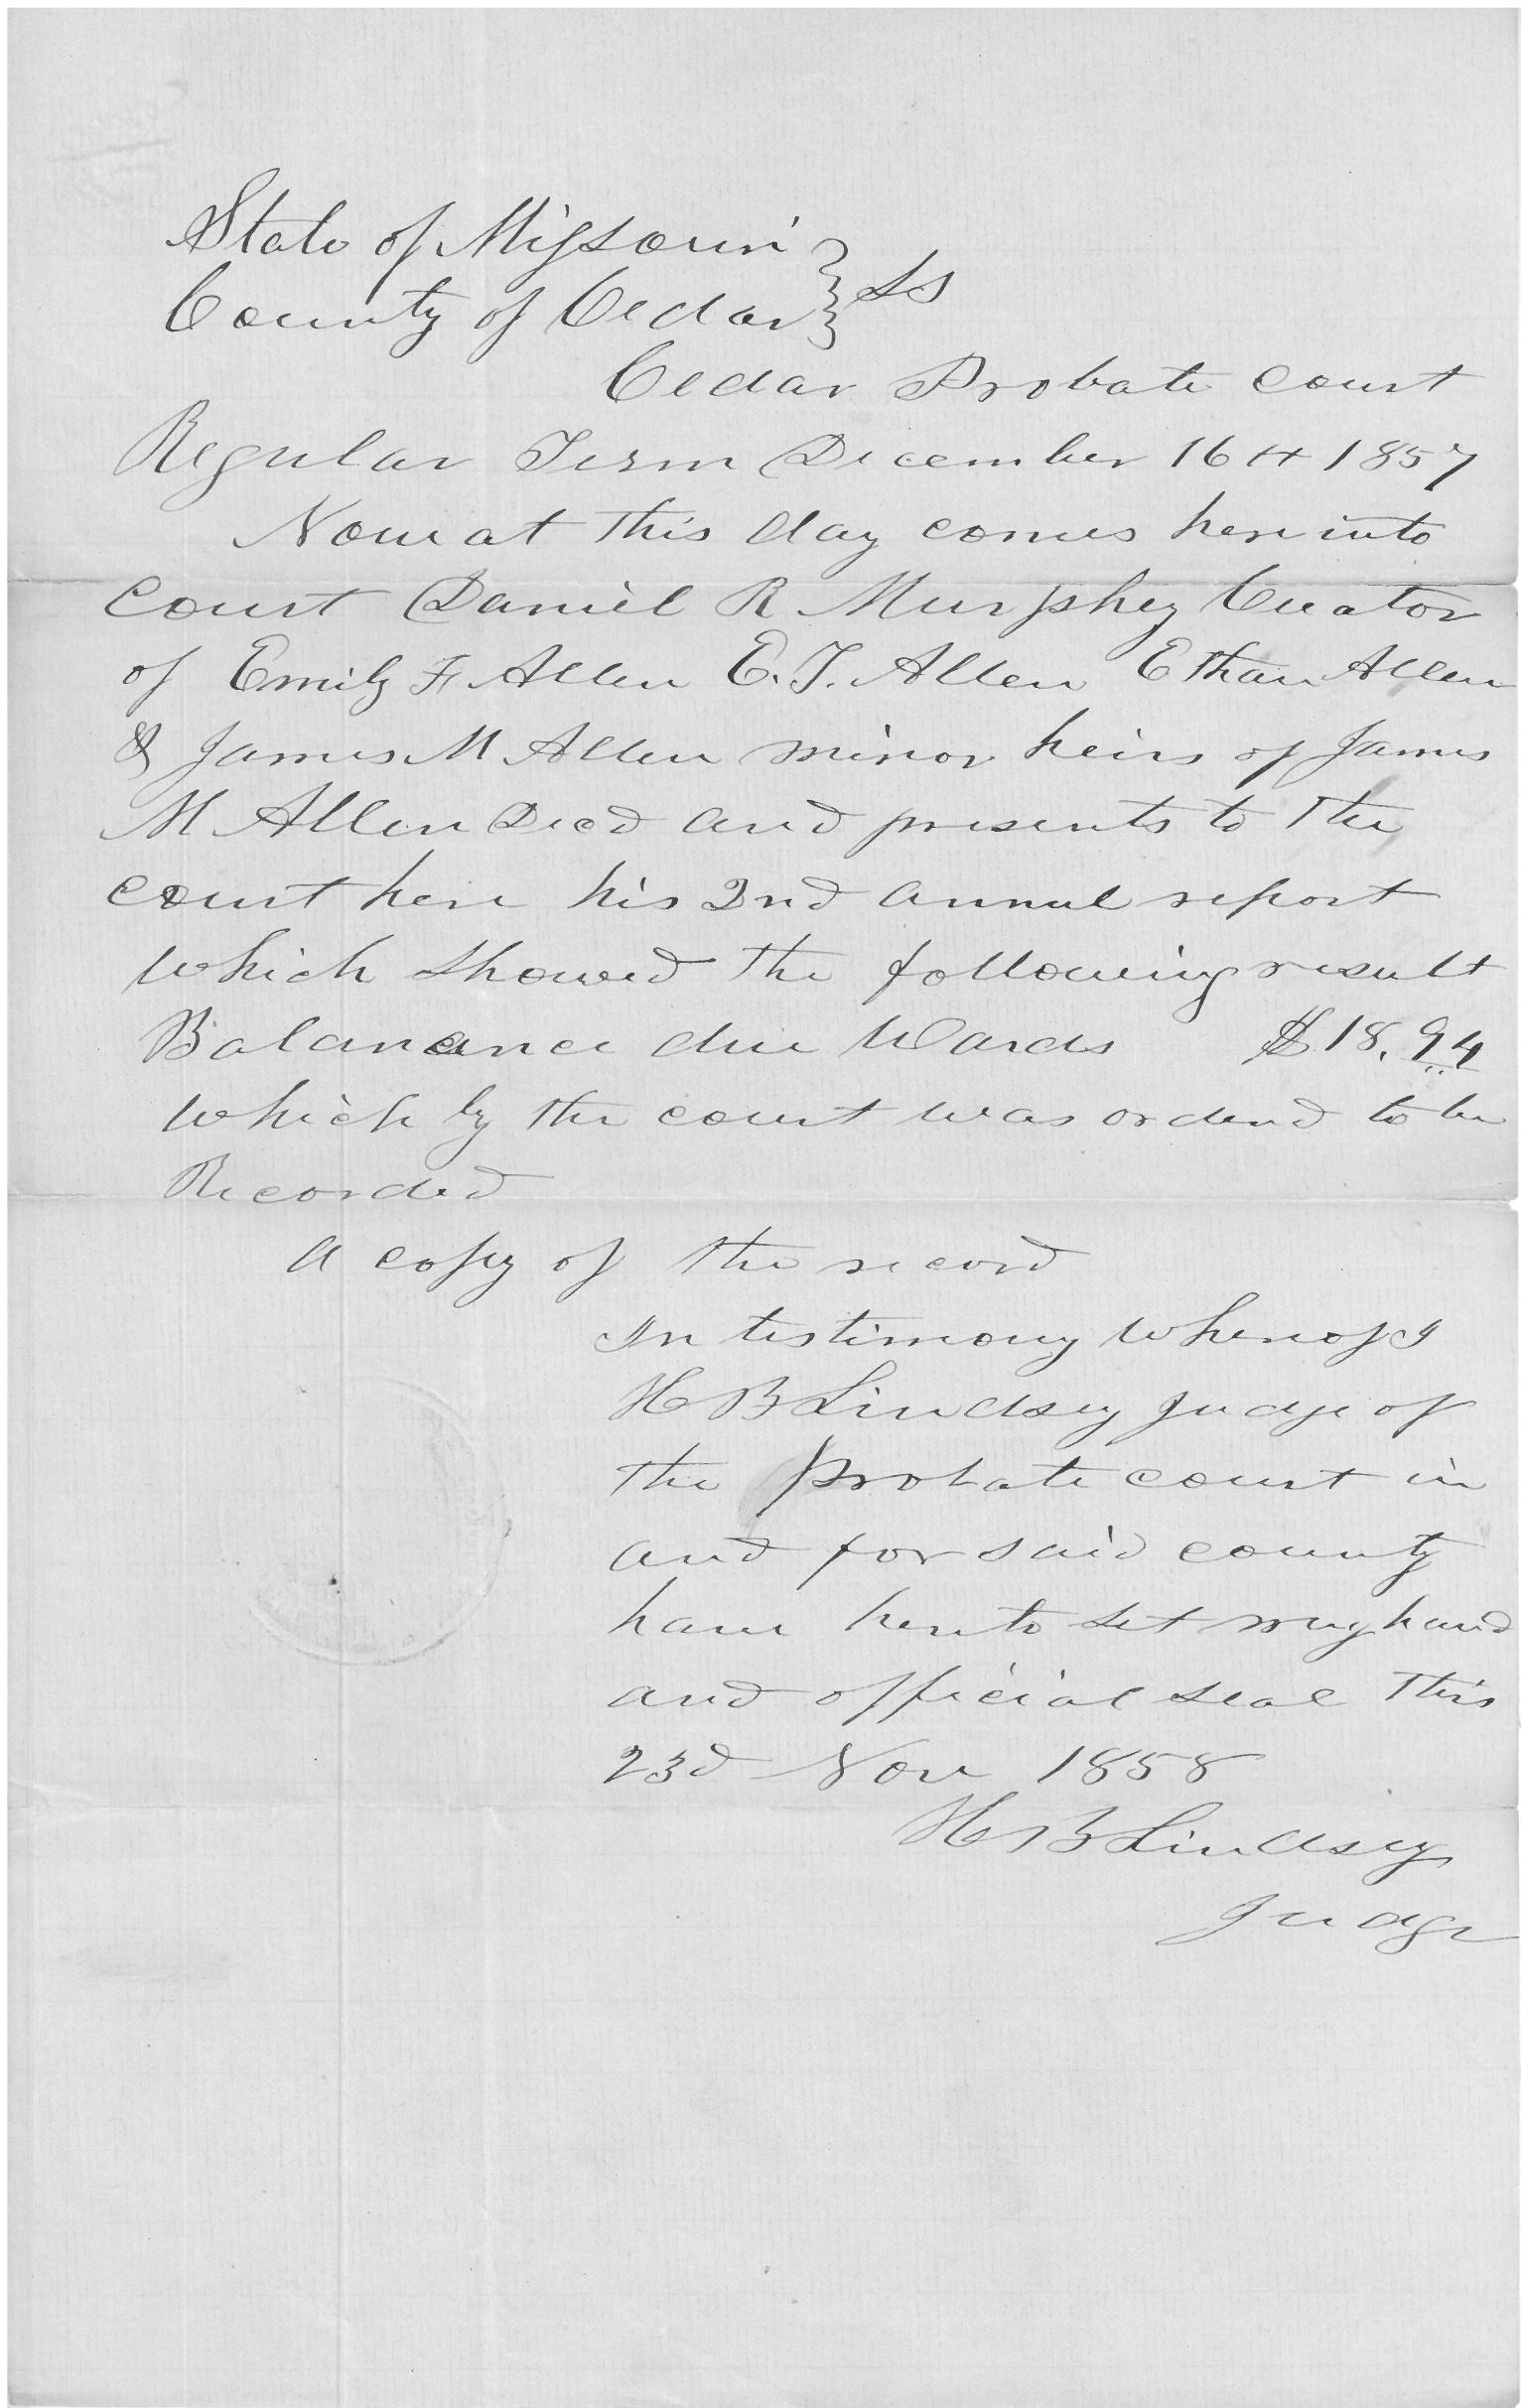 State of Missouri }
County of Cedar } SS
Cedar Probate Court
Regular Term December 16th 1857
Now at this day comes here into
court Daniel R Murphey Cuator
of Emily F Allen E. T. Allen Ethan Allen
& James M Allen minor heirs of James
M Allen Decd and presents to the
court here his 2nd annul report
which showed the following result
Balanance due Wards $18.94
which by the court was orderd to be
Recorded
A copy of the record
In testimony whereof I
H B Lindsey Judge of
the Probate court in
and for said county
have hereto set my hand
and official seal this
23d Nov 1858
H B Lindsey
Judge